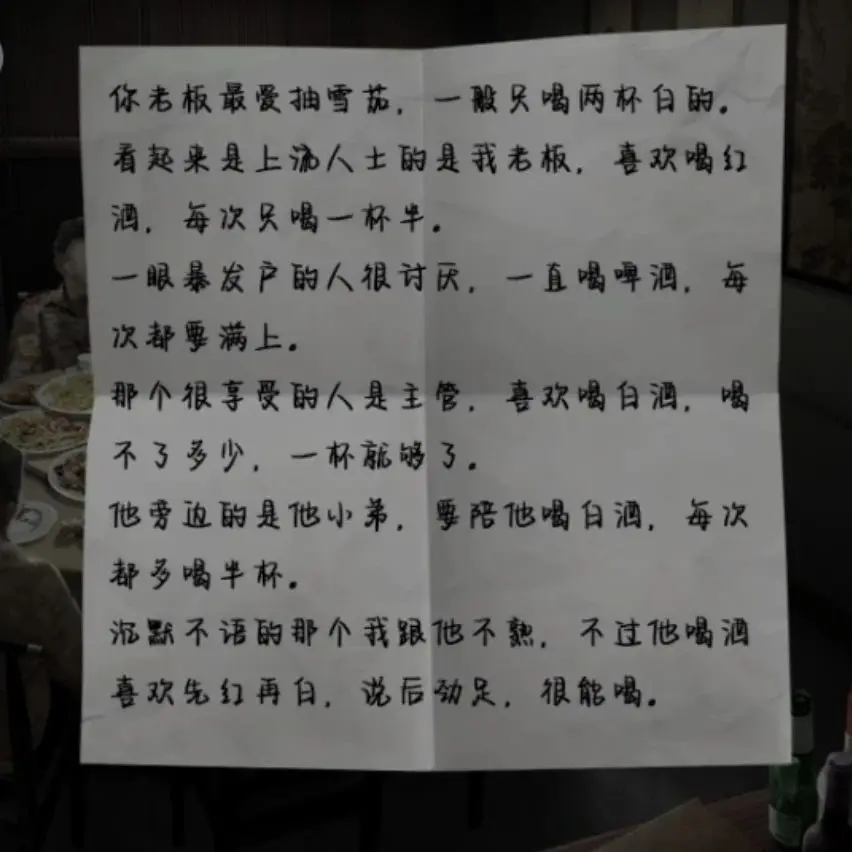 你老板最爱抽雪茄，一般只喝两杯白的。
看起来是上流人士的是我老板，喜欢喝红
酒，每次只喝一杯半。
一眼暴发户的人很讨厌，一直喝啤酒，每
次都要满上。
那个很享受的人是主管，喜欢喝白酒，喝
不了多少，一杯就够了。
他旁边的是他小弟，要陪他喝白酒，每次
都多喝半杯。
沉默不语的那个我跟他不熟，不过他喝酒
喜欢先红再白，说后劲足，很能喝。